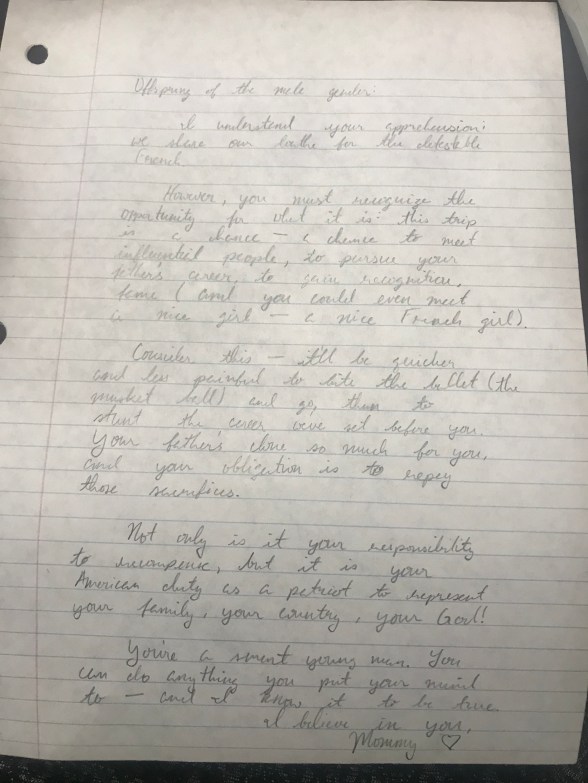 Offspring of the male gender:
I understand your apprehension:
we share our loathe for the detestable
French.
However, you must recognize the
opportunity for what it is: this trip
is a chance – a chance to meet
influential people, to pursue your
father's career, to gain recognition,
fame (and you could even meet
a nice girl – a nice French girl).
Consider this – it'll be quicker
and less painful to bite the bullet (the
musket ball) and go, than to
stunt the career we've set before you.
Your father's done so much for you,
and your obligation is to repay
those sacrifices.
Not only is it your responsibility
to recompense, but it is your
American duty as a patriot to represent
your family, your country, your God!
You're a smart young man. You
can do anything you put your mind
to – and I know it to be true.
I believe in you,
Mommy ♡